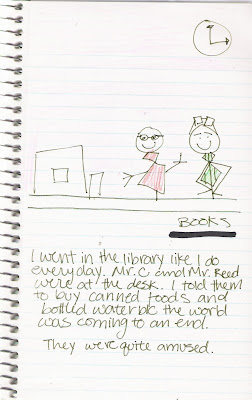 BOOKS
I went in the library like I do
everyday. Mr. C and Mr. Reed
were at the desk. I told them
to buy canned foods and
bottled water b/c the world
was coming to an end.
They were quite amused.